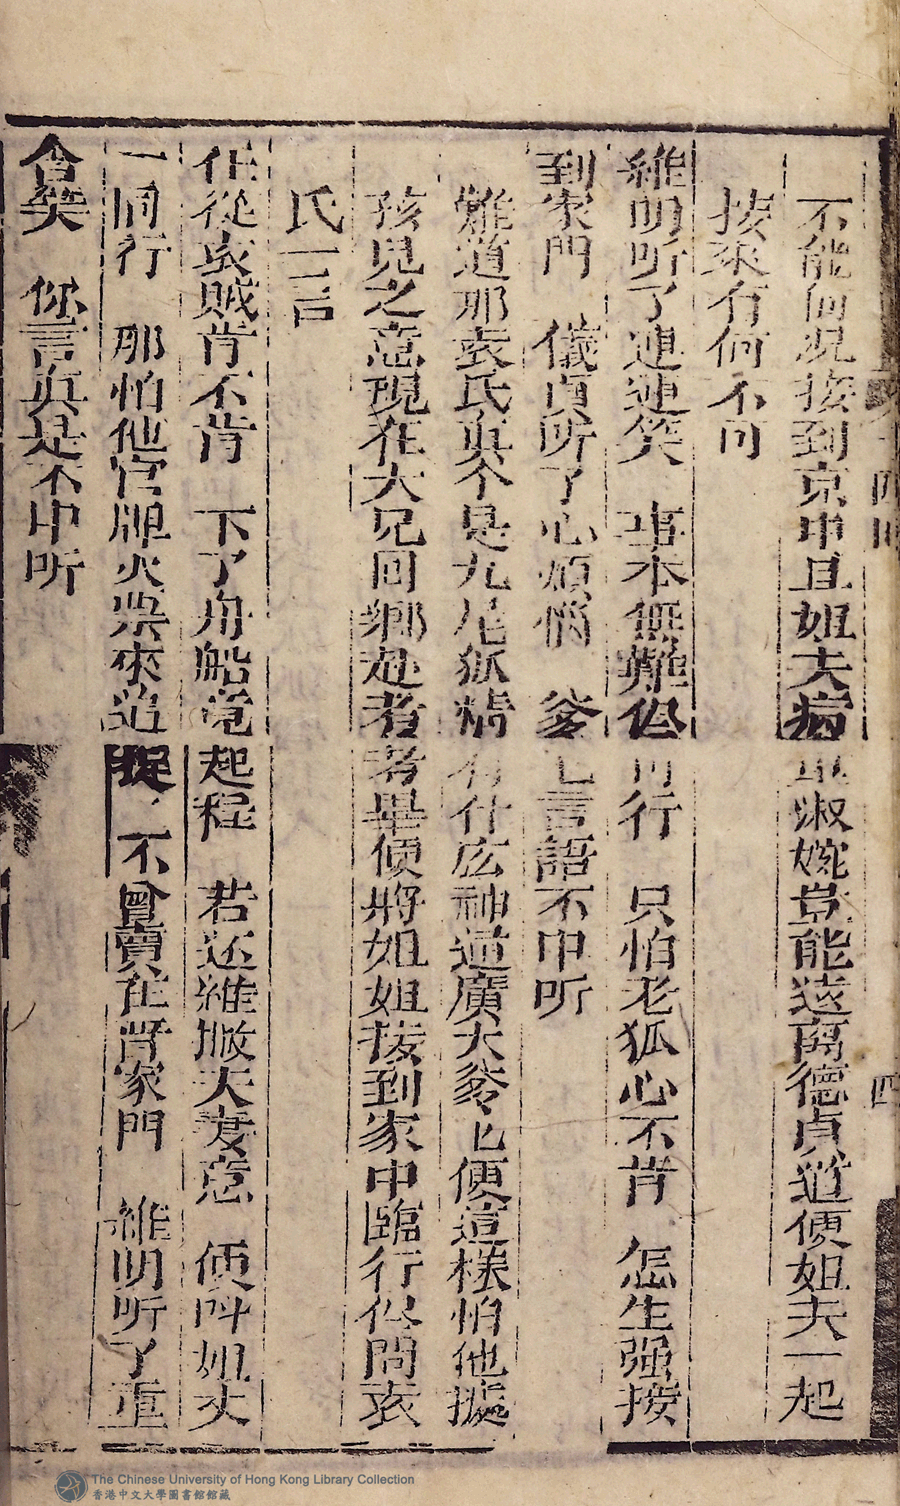 不能何况接到京中且姐夫病重淑婉豈能遠离德貞道便姐夫一起
接來有何不可
維明听了連連笑　事本無難但可行　只怕老狐心不肯　怎生强接
到家門　儀貞听了心煩惱　爹匕言語不中听
難道那袁氏真个是九尾狐精有什庅神道廣大爹匕便這樣怕他據
孩兒之意現在大兄回鄉赴考考畢便將姐姐接到家中臨行但問袁
氏一言
任從袁賊肯不肯　下了舟船竟起程　若还維撇夫妻意　便呌姐丈
一同行　那怕他官牌火票來追捉　不曾賣在胥家門　維明听了重
含笑　你言真是不中听
四
The Chinese University of Hong Kong Library Collection
香港中文大學圖書館館藏